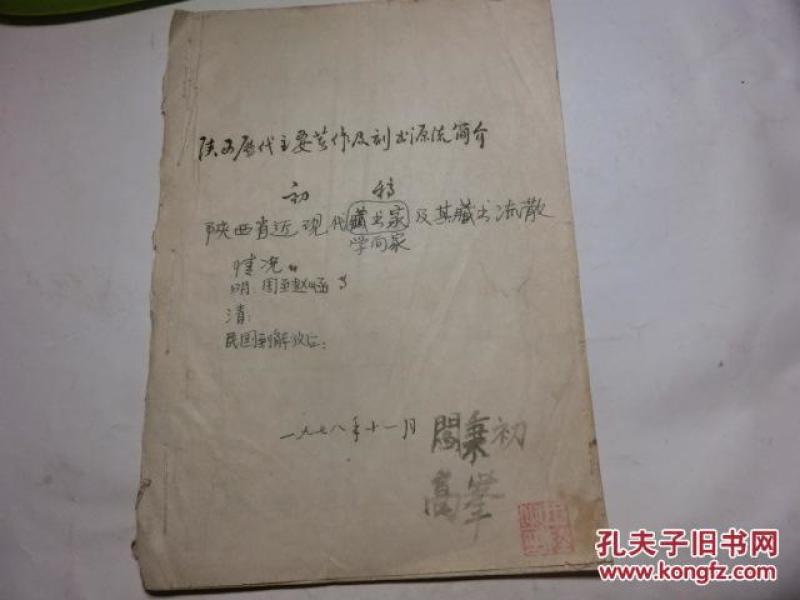 陕西历代主要著作及刻书源流简介
初稿
陕西省近现代藏书家及其藏书流散
学问家
情况。
明:
清:
民国到解放后:
一九七八年十一月
阎秉初
高举
孔夫子旧书网
www.kongfz.com